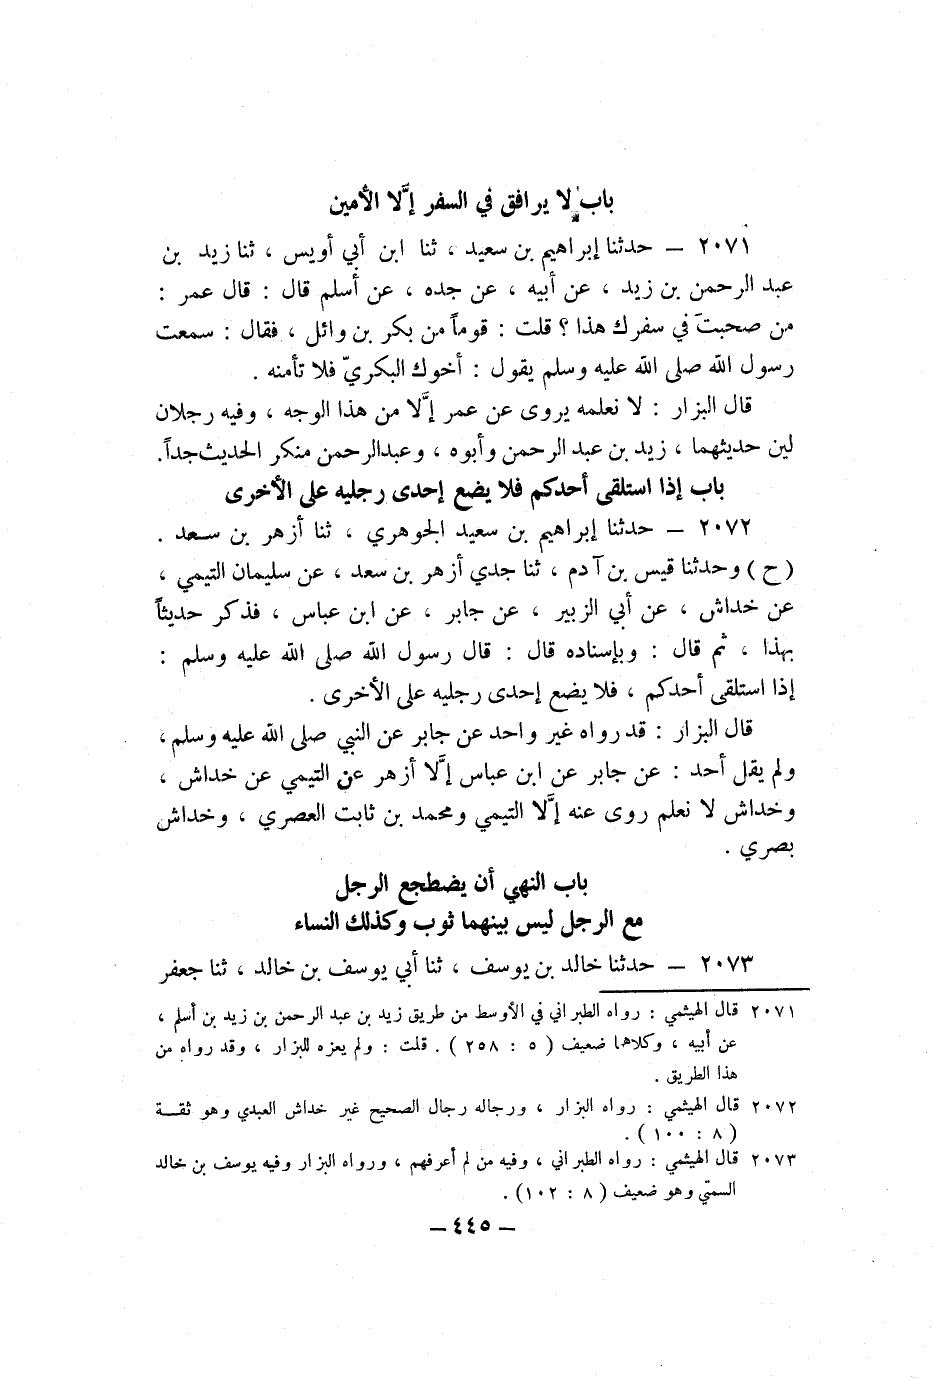 باب لا يرافق في السفر إلَّا الأمين
٢٠٧١ – حدثنا إبراهيم بن سعيد ، ثنا ابن أبي أويس ، ثنا زيد بن
عبد الرحمن بن زيد ، عن أبيه ، عن جده ، عن أسلم قال : قال عمر :
من صحبتَ في سفرك هذا ؟ قلت : قوماً من بكر بن وائل ، فقال : سمعت
رسول الله صلى الله عليه وسلم يقول : أخوك البكريّ فلا تأمنه .
قال البزار : لا نعلمه يروى عن عمر إلَّا من هذا الوجه ، وفيه رجلان
لين حديثهما ، زيد بن عبد الرحمن وأبوه ، وعبدالرحمن منكر الحديث جداً.
باب إذا استلقى أحدكم فلا يضع إحدى رجليه على الأخرى
٢٠٧٢ – حدثنا إبراهيم بن سعيد الجوهري ، ثنا أزهر بن سعد .
(ح) وحدثنا قيس بن آدم ، ثنا جدي أزهر بن سعد ، عن سليمان التيمي ،
عن خداش ، عن أبي الزبير ، عن جابر ، عن ابن عباس ، فذكر حديثاً
بهذا ، ثم قال : وبإسناده قال : قال رسول الله صلى الله عليه وسلم :
إذا استلقى أحدكم ، فلا يضع إحدى رجليه على الأخرى .
قال البزار : قد رواه غير واحد عن جابر عن النبي صلى الله عليه وسلم،
ولم يقل أحد : عن جابر عن ابن عباس إلَّا أزهر عن التيمي عن خداش ،
وخداش لا نعلم روى عنه إلَّا التيمي ومحمد بن ثابت العصري ، وخداش
بصري .
باب النهي أن يضطجع الرجل
مع الرجل ليس بينهما ثوب وكذلك النساء
٢٠٧٣ – حدثنا خالد بن يوسف ، ثنا أبي يوسف بن خالد ، ثنا جعفر
٢٠٧١ قال الهيثمي : رواه الطبراني في الأوسط من طريق زيد بن عبد الرحمن بن زيد بن أسلم ،
عن أبيه ، وكلاهما ضعيف ( ٥ : ٢٥٨ ) . قلت : ولم يعزه للبزار ، وقد رواه من
هذا الطريق .
٢٠٧٢ قال الهيثمي : رواه البزار ، ورجاله رجال الصحيح غير خداش العبدي وهو ثقة
( ٨ : ١٠٠ ) .
٢٠٧٣ قال الهيثمي : رواه الطبراني ، وفيه من لم أعرفهم ، ورواه البزار وفيه يوسف بن خالد
السمتي وهو ضعيف ( ٨ : ١٠٢) .
– ٤٤٥ –